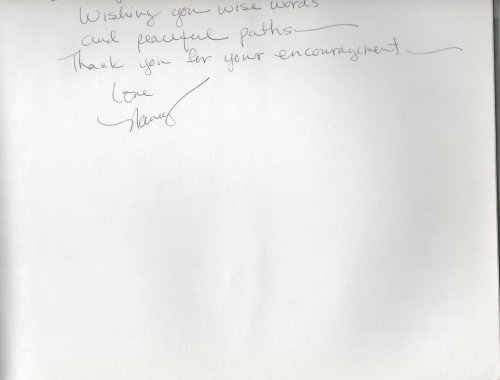 Wishing you wise words
and peaceful paths—
Thank you for your encouragement—
Love
Nancy